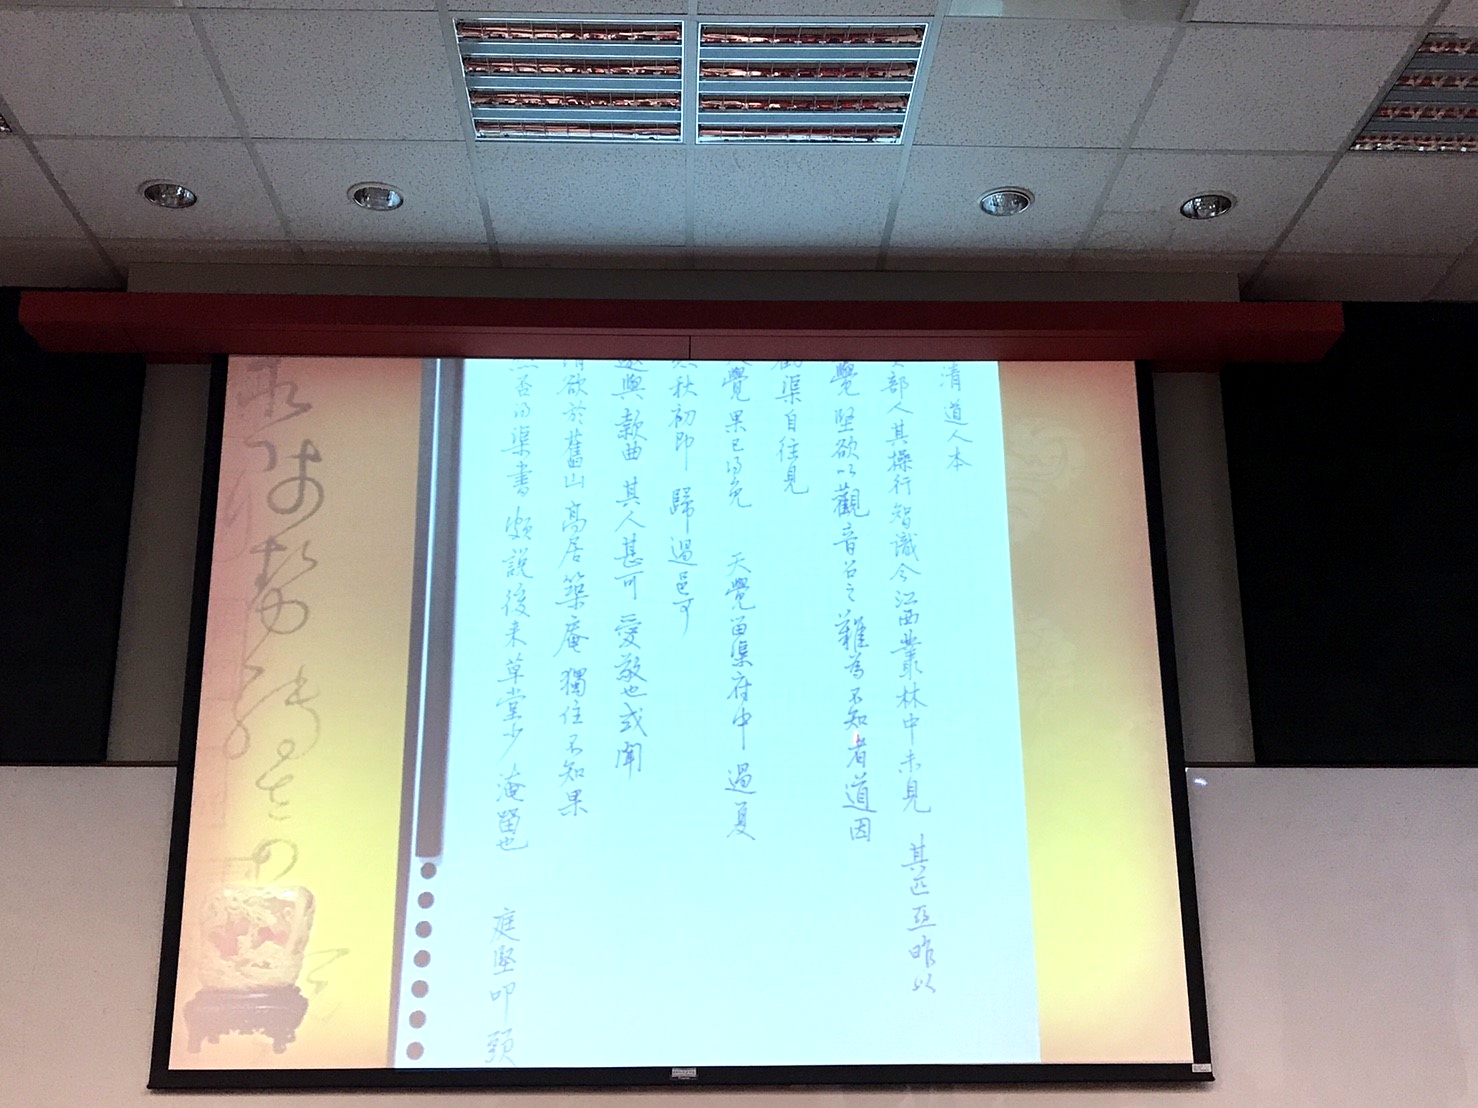 清道人本
部人其操行智識今江西叢林中未見 其匹亞昨以
覺堅欲以觀音召之難為不知者道因
渠自往見
覺果已得免 天覺留渠府中過夏
秋初即 歸過邑可
與款曲 其人甚可 愛敬也或聞
欲於舊山 高居築庵 獨住不知果
否得渠書 頗說後来草堂少 淹留也
庭堅叩頭